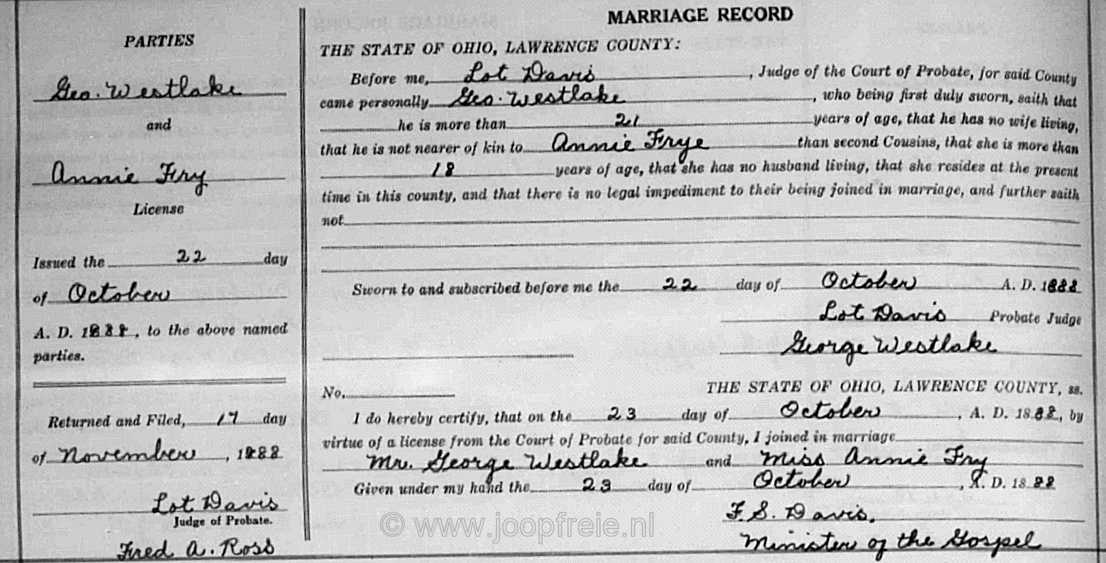 PARTIES
Geo. Westlake
and
Annie Fry
License
Issued the 22 day
of October
A. D. 1888, to the above named
parties.
Returned and Filed, 17 day
of November, 1888
Lot Davis
Judge of Probate.
Fred A. Ross
MARRIAGE RECORD
THE STATE OF OHIO, LAWRENCE COUNTY:
Before me, Lot Davis, Judge of the Court of Probate, for said County
came personally Geo. Westlake, who being first duly sworn, saith that
he is more than 21 years of age, that he has no wife living,
that he is not nearer of kin to Annie Frye than second Cousins, that she is more than
18 years of age, that she has no husband living, that she resides at the present
time in this county, and that there is no legal impediment to their being joined in marriage, and further saith
not
Sworn to and subscribed before me the 22 day of October A. D. 1888
Lot Davis Probate Judge
George Westlake
No. THE STATE OF OHIO, LAWRENCE COUNTY, ss.
I do hereby certify, that on the 23 day of October, A. D. 18.88, by
virtue of a license from the Court of Probate for said County, I joined in marriage
Mr. George Westlake and Miss Annie Fry
Given under my hand the 23 day of October, A. D. 18.88
F. S. Davis,
Minister of the Gospel
© www.joopfreie.nl